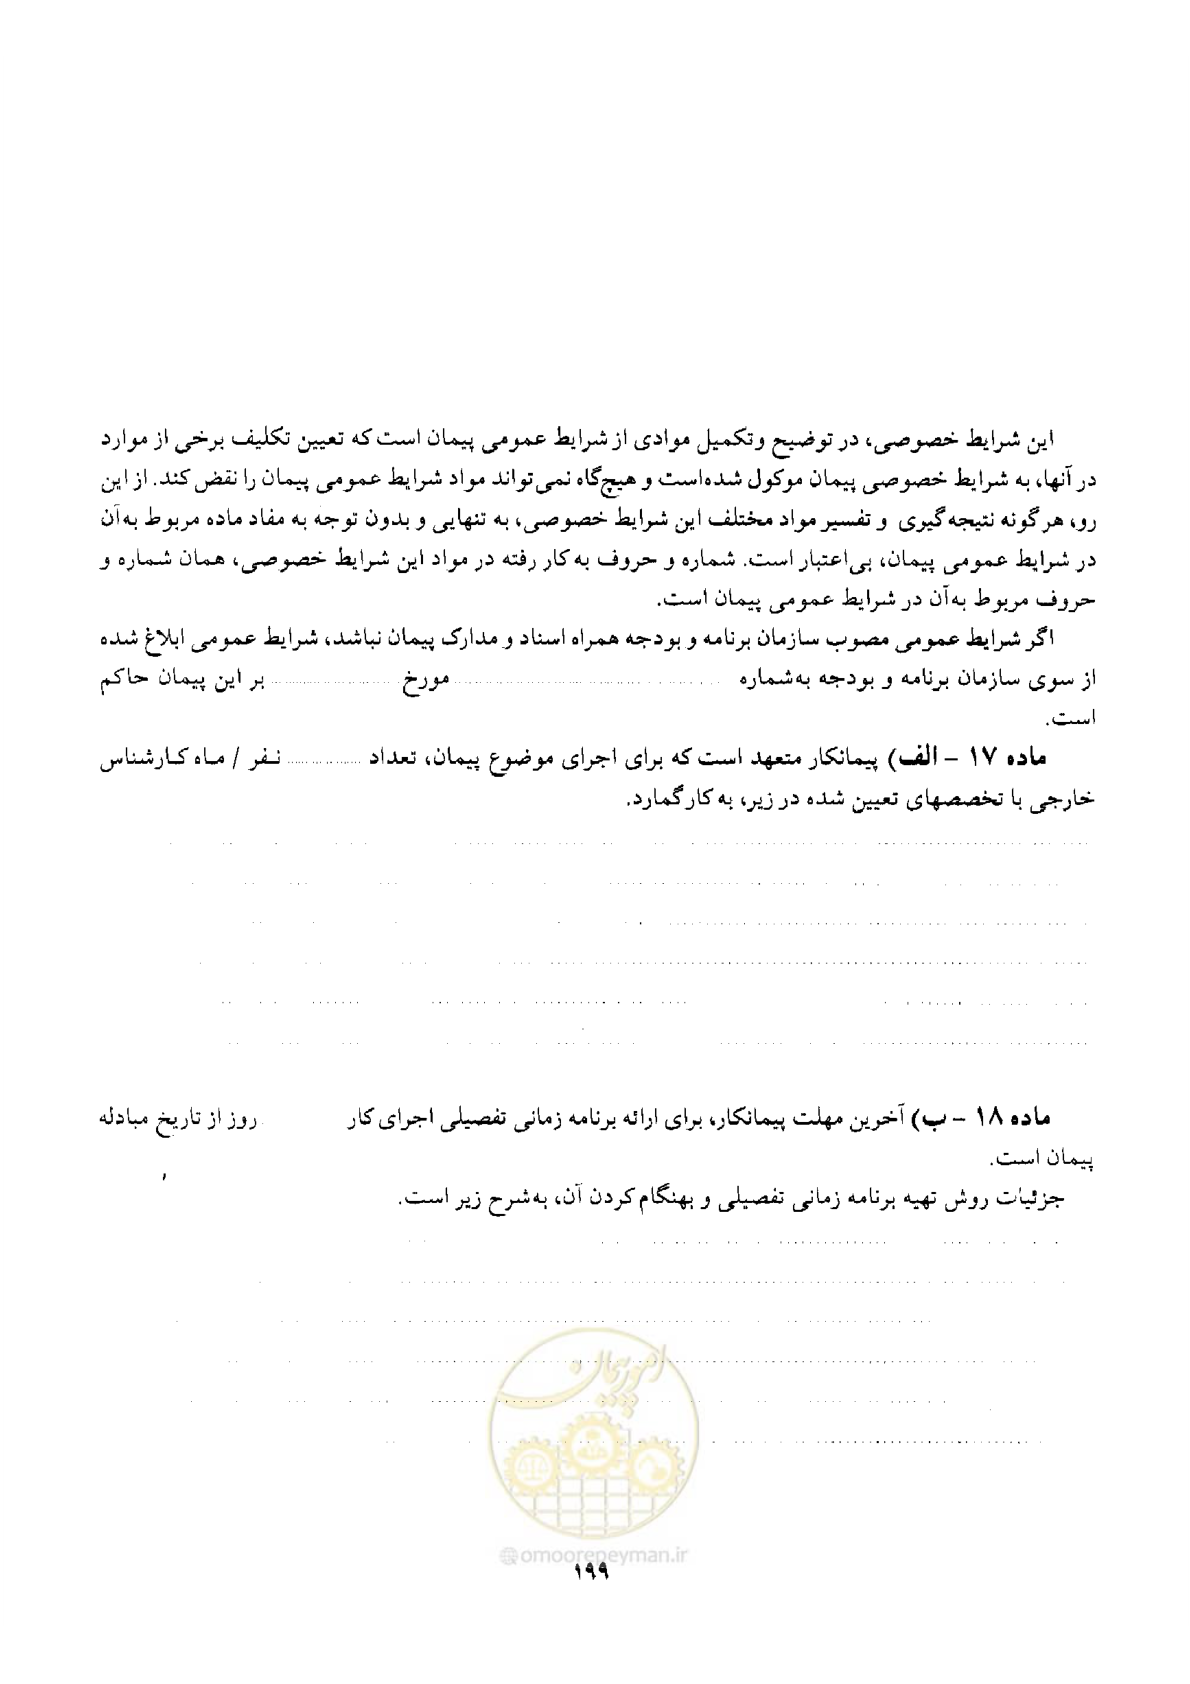 این شرایط خصوصی، در توضیح وتکمیل موادی از شرایط عمومی پیمان است که تعیین تکلیف برخی از موارد
در آنها، به شرایط خصوصی پیمان موکول شده‌است و هیچ‌گاه نمی‌تواند مواد شرایط عمومی پیمان را نقض کند. از این
رو، هر گونه نتیجه‌گیری و تفسیر مواد مختلف این شرایط خصوصی، به تنهایی و بدون توجه به مفاد ماده مربوط به‌آن
در شرایط عمومی پیمان، بی‌اعتبار است. شماره و حروف به‌کار رفته در مواد این شرایط خصوصی، همان شماره و
حروف مربوط به‌آن در شرایط عمومی پیمان است.
اگر شرایط عمومی مصوب سازمان برنامه و بودجه همراه اسناد و مدارک پیمان نباشد، شرایط عمومی ابلاغ شده
از سوی سازمان برنامه و بودجه به‌شماره .................... مورخ .................... بر این پیمان حاکم
است.
ماده ۱۷ - الف) پیمانکار متعهد است که برای اجرای موضوع پیمان، تعداد ............ نفر / ماه کارشناس
خارجی با تخصصهای تعیین شده در زیر، به کار گمارد.
ماده ۱۸ - ب) آخرین مهلت پیمانکار، برای ارائه برنامه زمانی تفصیلی اجرای کار روز از تاریخ مبادله
پیمان است.
جزئیات روش تهیه برنامه زمانی تفصیلی و بهنگام کردن آن، به‌شرح زیر است.
امور پیمان
@omoorepeyman.ir
۱۹۹